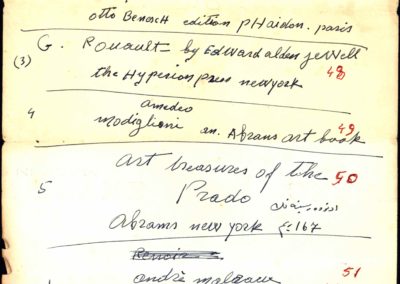 otto Benesch edition pHaidon. paris
(3) G. Rouault by Edward alden jewell 48
the Hyperion press newyork
amedeo 49
4 modiglioni an. Abrams art book
art treasures of the 50
5 Prado
Abrams new york ع: 167
Renoir 51
andré malraux